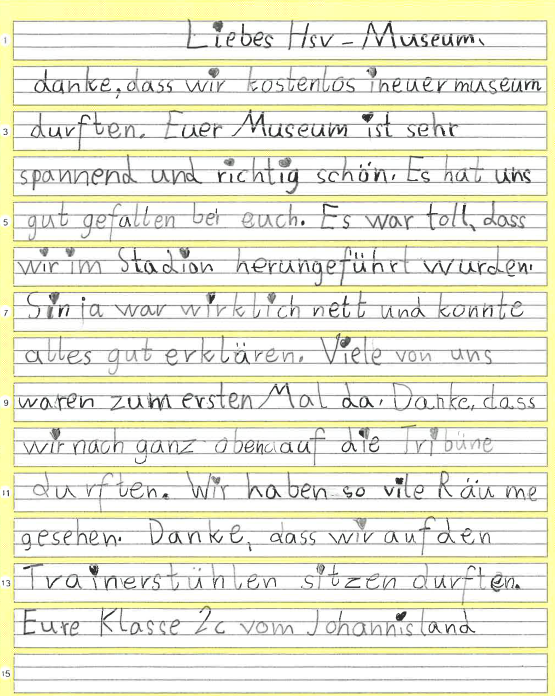 Liebes Hsv - Museum.
danke, dass wir kostenlos ineuer museum
durften. Euer Museum ist sehr
spannend und richtig schön. Es hat uns
gut gefallen bei euch. Es war toll, dass
wir im Stadion herungeführt wurden.
Sinja war wirklich nett und konnte
alles gut erklären. Viele von uns
waren zum ersten Mal da. Danke, dass
wir nach ganz obenaauf die Tribüne
durften. Wir haben so vile Räume
gesehen. Danke, dass wir auf den
Trainerstühlen sitzen durften.
Eure Klasse 2c vom Johannisland
1
3
5
7
9
11
13
15